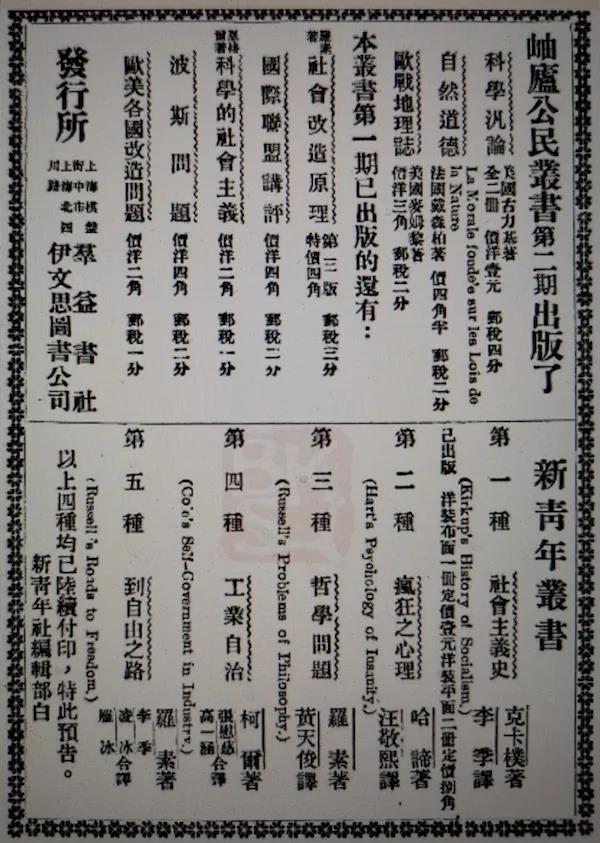 岫廬公民叢書第二期出版了
科學汎論
英國古力基著
全二冊 價洋壹元 郵稅四分
自然道德
La Morale fondée sur les Lois de la Nature
法國戴森柏著 價四角半 郵稅二分
歐戰地理誌
美國麥姆黎著
價洋三角 郵稅二分
本叢書第一期已出版的還有：
羅素著 社會改造原理 第二版 特價四角 郵稅三分
國際聯盟講評 價洋四角 郵稅二分
科學的社會主義 價洋二角 郵稅一分
波斯問題 價洋四角 郵稅二分
歐美各國改造問題 價洋二角 郵稅一分
發行所
上海棋盤街中市 羣益書社
上海北四川路 伊文思圖書公司
新青年叢書
第一種 社會主義史 克卡樸著 李季譯
(Kirkup's History of Socialism.)
已出版 洋裝布面一冊定價壹元洋裝平面二冊定價捌角
第二種 瘋狂之心理 哈諦著 汪敬熙譯
(Hart's Psychology of Insanity.)
第三種 哲學問題 羅素著 黃天俊譯
(Russell's Problems of Philosophy.)
第四種 工業自治 柯爾著 張慰慈 高一涵合譯
(Co'e's Self-Government in Industry.)
第五種 到自由之路 羅素著 李季 凌冰 雁冰 合譯
(Russell's Roads to Freedom.)
以上四種均已陸續付印，特此預告。
新青年社編輯部白